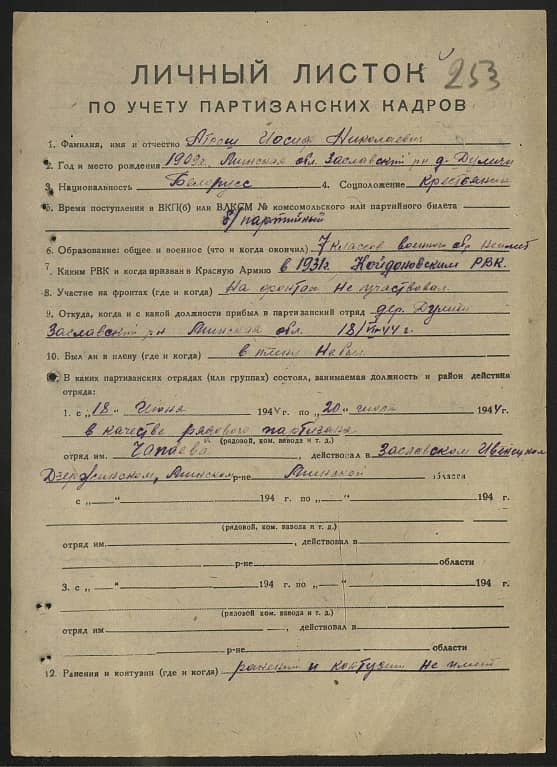 253
ЛИЧНЫЙ ЛИСТОК
ПО УЧЕТУ ПАРТИЗАНСКИХ КАДРОВ
1. Фамилия, имя и отчество Иосиф Николаевич
2. Год и место рождения 1909г. Минская обл. Заславский рн д.
3. Национальность Белорусс 4. Соцположение крестьянин
5. Время поступления в ВКП(б) или ВЛКСМ № комсомольского или партийного билета
б/партийный
6. Образование: общее и военное (что и когда окончил) 7 классов военного обр.
7. Каким РВК и когда призван в Красную Армию в 1931г. Койдоновским РВК.
8. Участие на фронтах (где и когда) На фронтах не участвовал
9. Откуда, когда и с какой должности прибыл в партизанский отряд дер.
Заславский рн Минская обл. 18/VI-44 г.
10. Был ли в плену (где и когда) в плену не был
В каких партизанских отрядах (или группах) состоял, занимаемая должность и район действия
отряда:
1. с „18“ июня 1944 г. по „20“ июля 1944 г.
в качестве рядового партизана
(рядовой, ком. взвода и т. д.)
отряд им. Чапаева, действовал в Заславском Ивенецком
Дзержинском, Минском р-не Минской области
с „ “ 194 г. по „ “ 194 г.
(рядовой, ком. взвода и т. д.)
отряд им. , действовал в
р-не области
3. с „ “ 194 г. по „ “ 194 г.
(рядовой ком. взвода и т. д.)
отряд им , действовал в
р-не области
12. Ранения и контузии (где и когда) ранений и контузий не имеет